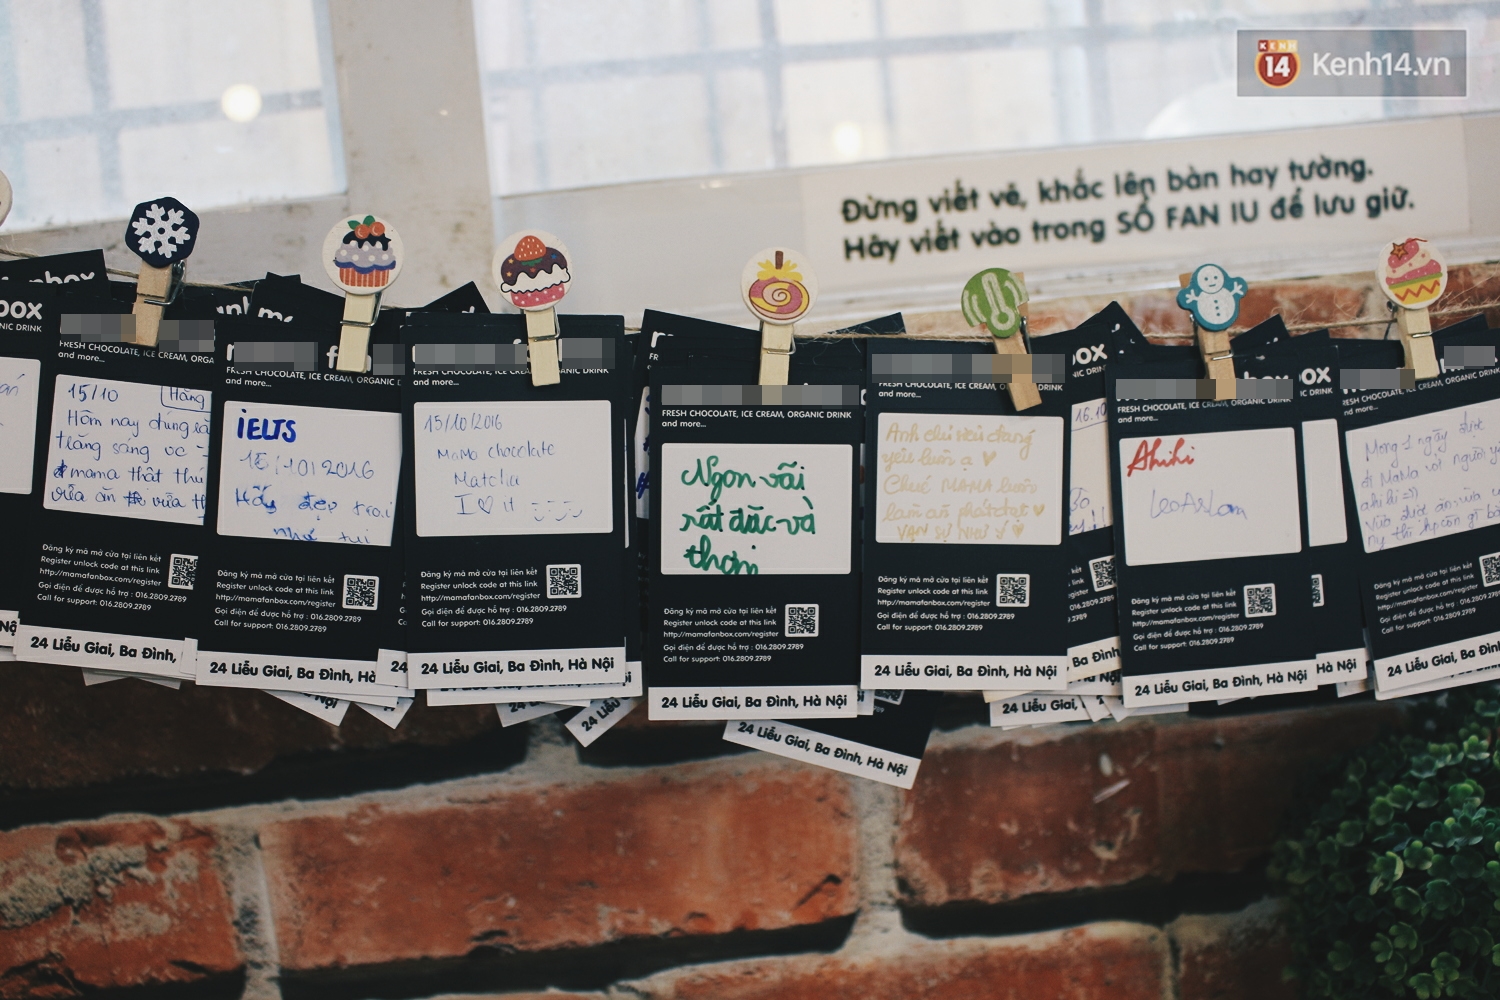 KENH
14
Kenh14.vn
Đừng viết vẽ, khắc lên bàn hay tường.
Hãy viết vào trong SỔ FAN IU để lưu giữ.
box
NIC DRINK
FRESH CHOCOLATE, ICE CREAM, ORGA
and more...
15/10
Hôm nay
trăng sáng vc
mama thật thú
vừa ăn vừa
Đăng ký mã mở cửa tại liên kết
Register unlock code at this link
http://mamafanbox.com/register
Gọi điện để được hỗ trợ : 016.2809.2789
Call for support: 016.2809.2789
24 Liễu Giai, Ba Đình,
FRESH CHOCOLATE, ICE CREAM, ORGANIC D
and more...
iELTS
15/10/2016
đẹp trai
nhất
Đăng ký mã mở cửa tại liên kết
Register unlock code at this link
http://mamafanbox.com/register
Gọi điện để được hỗ trợ : 016.2809.2789
Call for support: 016.2809.2789
24 Liễu Giai, Ba Đình, Hà Nội
24
FRESH CHOCOLATE, ICE CREAM, ORGANIC DRINK
and more...
15/10/2016
MaMa chocolate
Matcha
I ♡ it
Đăng ký mã mở cửa tại liên kết
Register unlock code at this link
http://mamafanbox.com/register
Gọi điện để được hỗ trợ : 016.2809.2789
Call for support: 016.2809.2789
24 Liễu Giai, Ba Đình, Hà Nội
FRESH CHOCOLATE, ICE CREAM, ORGANIC DRINK
and more...
Ngon vãi
rất đặc và
thơm
Đăng ký mã mở cửa tại liên kết
Register unlock code at this link
http://mamafanbox.com/register
Gọi điện để được hỗ trợ : 016.2809.2789
Call for support: 016.2809.2789
24 Liễu Giai, Ba Đình, Hà Nội
24 Liễu Giai, Ba Đình, Hà Nội
FRESH CHOCOLATE, ICE CREAM, ORGANIC DRINK
and more...
Anh chị
yêu luôn ạ ♥
Chúc MAMA luôn
làm ăn phát đạt ♥
VẠN SỰ NHƯ Ý ♥
Đăng ký mã mở cửa tại liên kết
Register unlock code at this link
http://mamafanbox.com/register
Gọi điện để được hỗ trợ : 016.2809.2789
Call for support: 016.2809.2789
24 Liễu Giai, Ba Đình, Hà Nội
box
16.10
Ba Đình
24 Liễu Giai,
FRESH CHOCOLATE, ICE CREAM, ORGANIC DRINK
and more...
Ahihi
Đăng ký mã mở cửa tại liên kết
Register unlock code at this link
http://mamafanbox.com/register
Gọi điện để được hỗ trợ : 016.2809.2789
Call for support: 016.2809.2789
24 Liễu Giai, Ba Đình, Hà Nội
box
DRINK
Hà Nội
and more...
Mong 1 ngày được
đi MaMa với người
ahihi =))
Vừa được ăn vừa
Đăng ký mã mở cửa tại liên kết
Register unlock code at this link
http://mamafanbox.com/register
Gọi điện để được hỗ trợ : 016.2809.2789
Call for support: 016.2809.2789
24 Liễu Giai, Ba Đình, Hà Nội